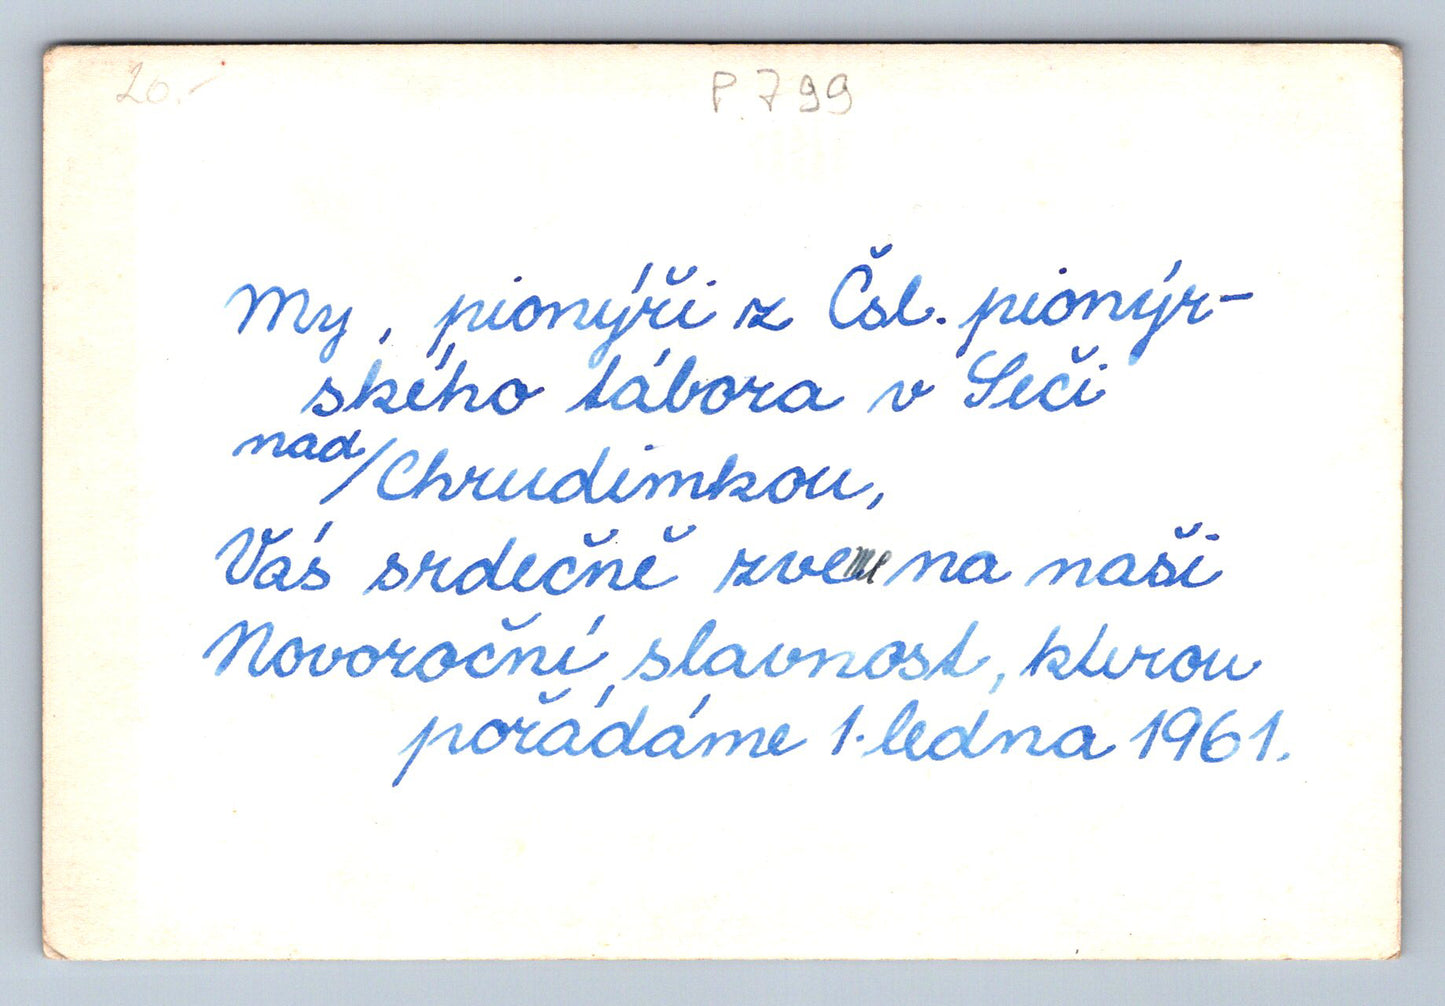 20.-
P 799
My, pionýři z Čsl. pionýr-
ského tábora v Seči
nad/Chrudimkou,
Vás srdečně zveme na naši
Novoroční slavnost, kterou
pořádáme 1. ledna 1961.